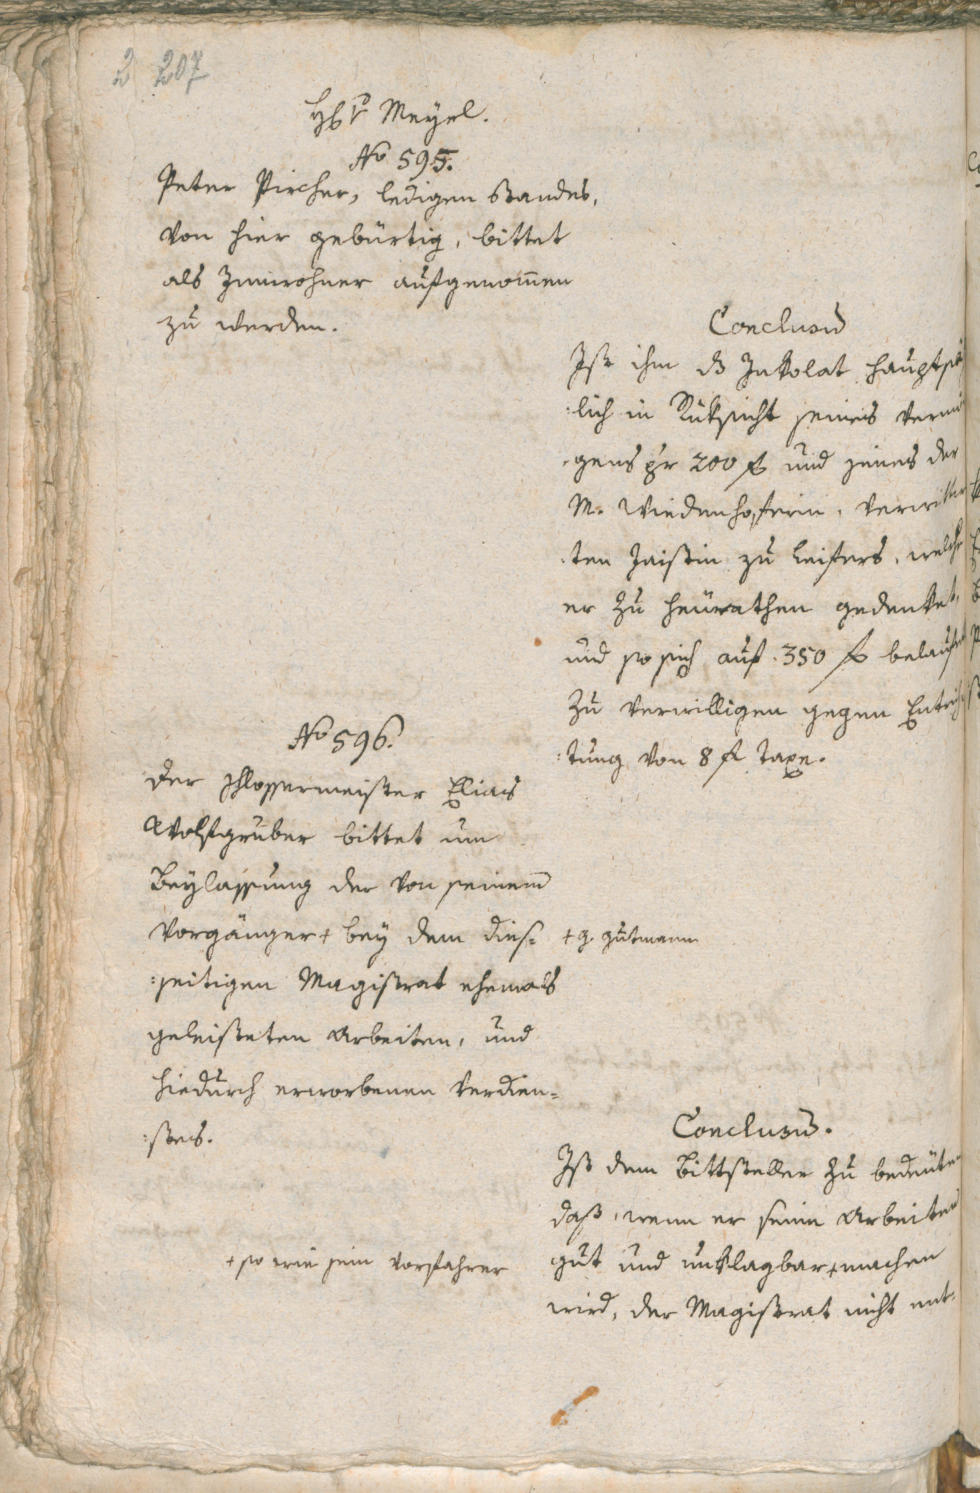 2 207
H. Meyel.
No 595.
Peter Pircher, ledigen Standes,
von hier gebürtig, bittet
als Innwohner aufgenom̅en
zu werden.
Conclusum
Ist ihm das Inkolat hauptsäch
:lich in Rüksicht seines Vermö
:gens pr 200 f und jenes der
M. Wiedenhoferin, verwittw
:ten Zaissin zu Leifers, welche
er zu heürathen gedenket,
und so sich auf 350 f belaufen
zu verwilligen gegen Entrich
:tung von 8 f Taxe.
No 596.
Der Schlossermeister Elias
Wolfgruber bittet um
Beylassung der von seinem
Vorgänger + bey dem dies=
:seitigen Magistrat ehemals
geleisteten Arbeiten, und
hiedurch erworbenen Verdien=
:stes.
+ J. Gutmann
Conclusum.
Ist dem Bittsteller zu bedeüten
daß, wenn er seine Arbeiten
gut und unklagbar + machen
wird, der Magistrat nicht ent:
+ so wie sein Vorfahrer